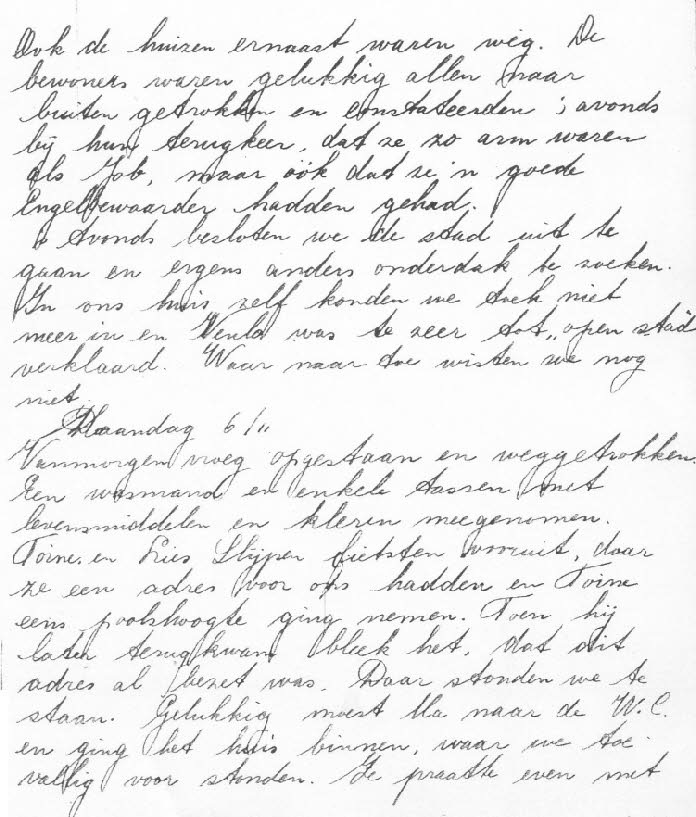 Ook de huizen ernaast waren weg. De
bewoners waren gelukkig allen naar
buiten getrokken en constateerden 's avonds
bij hun terugkeer, dat ze zo arm waren
als Job, maar óók dat ze 'n goede
Engelbewaarder hadden gehad.
's Avonds besloten we de stad uit te
gaan en ergens anders onderdak te zoeken.
In ons huis zelf konden we toch niet
meer in en Venlo was te zeer tot „open stad"
verklaard. Waar naar toe wisten we nog
niet.
Maandag 6/11
Vanmorgen vroeg opgestaan en weggetrokken.
Een wasmand en enkele tassen met
levensmiddelen en kleren meegenomen.
Toine en Lies fietsten vooruit, daar
ze een adres voor ons hadden en Toine
eens poolshoogte ging nemen. Toen hij
later terugkwam bleek het, dat dit
adres al bezet was. Daar stonden we te
staan. Gelukkig moest Ma naar de W.C.
en ging het huis binnen, waar we toe-
vallig voor stonden. Ze praatte even met